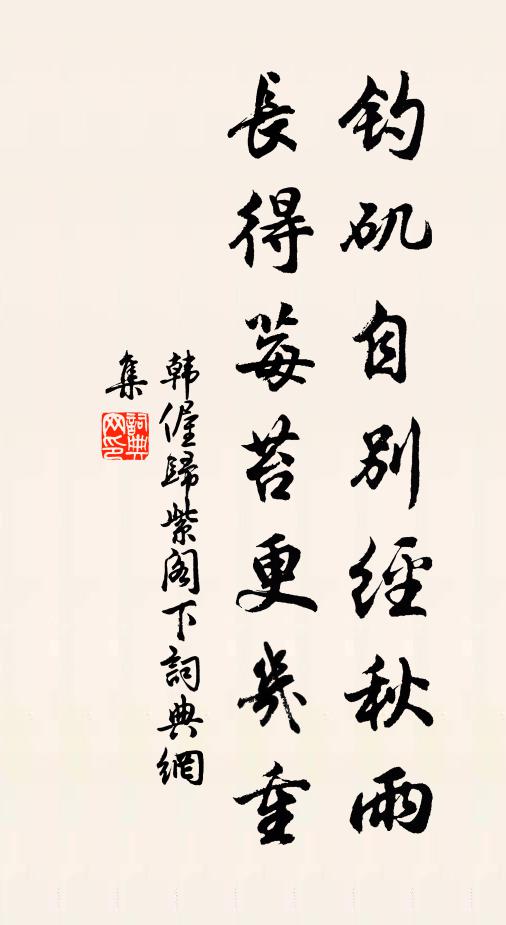 钓矶自别經秋雨
長得莓苔更幾重
韩偓歸紫阁下詞典網
集
詞典網印